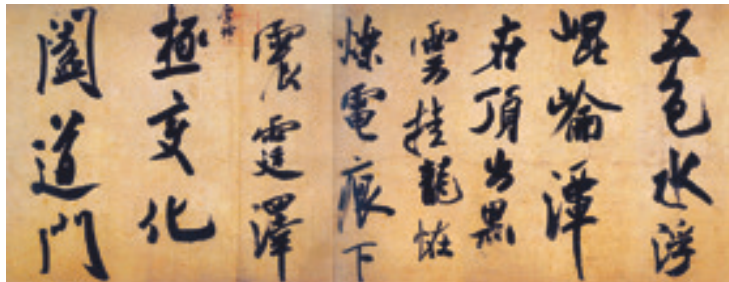 五色水浮
崐崘潭
在頂出黑
雲挂龍怪
爍電痕下
震霆澤
極變化
闔道門